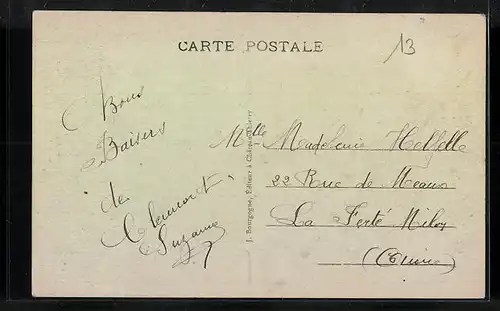 CARTE POSTALE
13
Bons
Baisers
de
Clermont
Suzanne
J. Bourgogne, Éditeur à Château-Thierry
Mlle Madeleine
22 Rue de Meaux
La Ferté Milon
(Aisne)